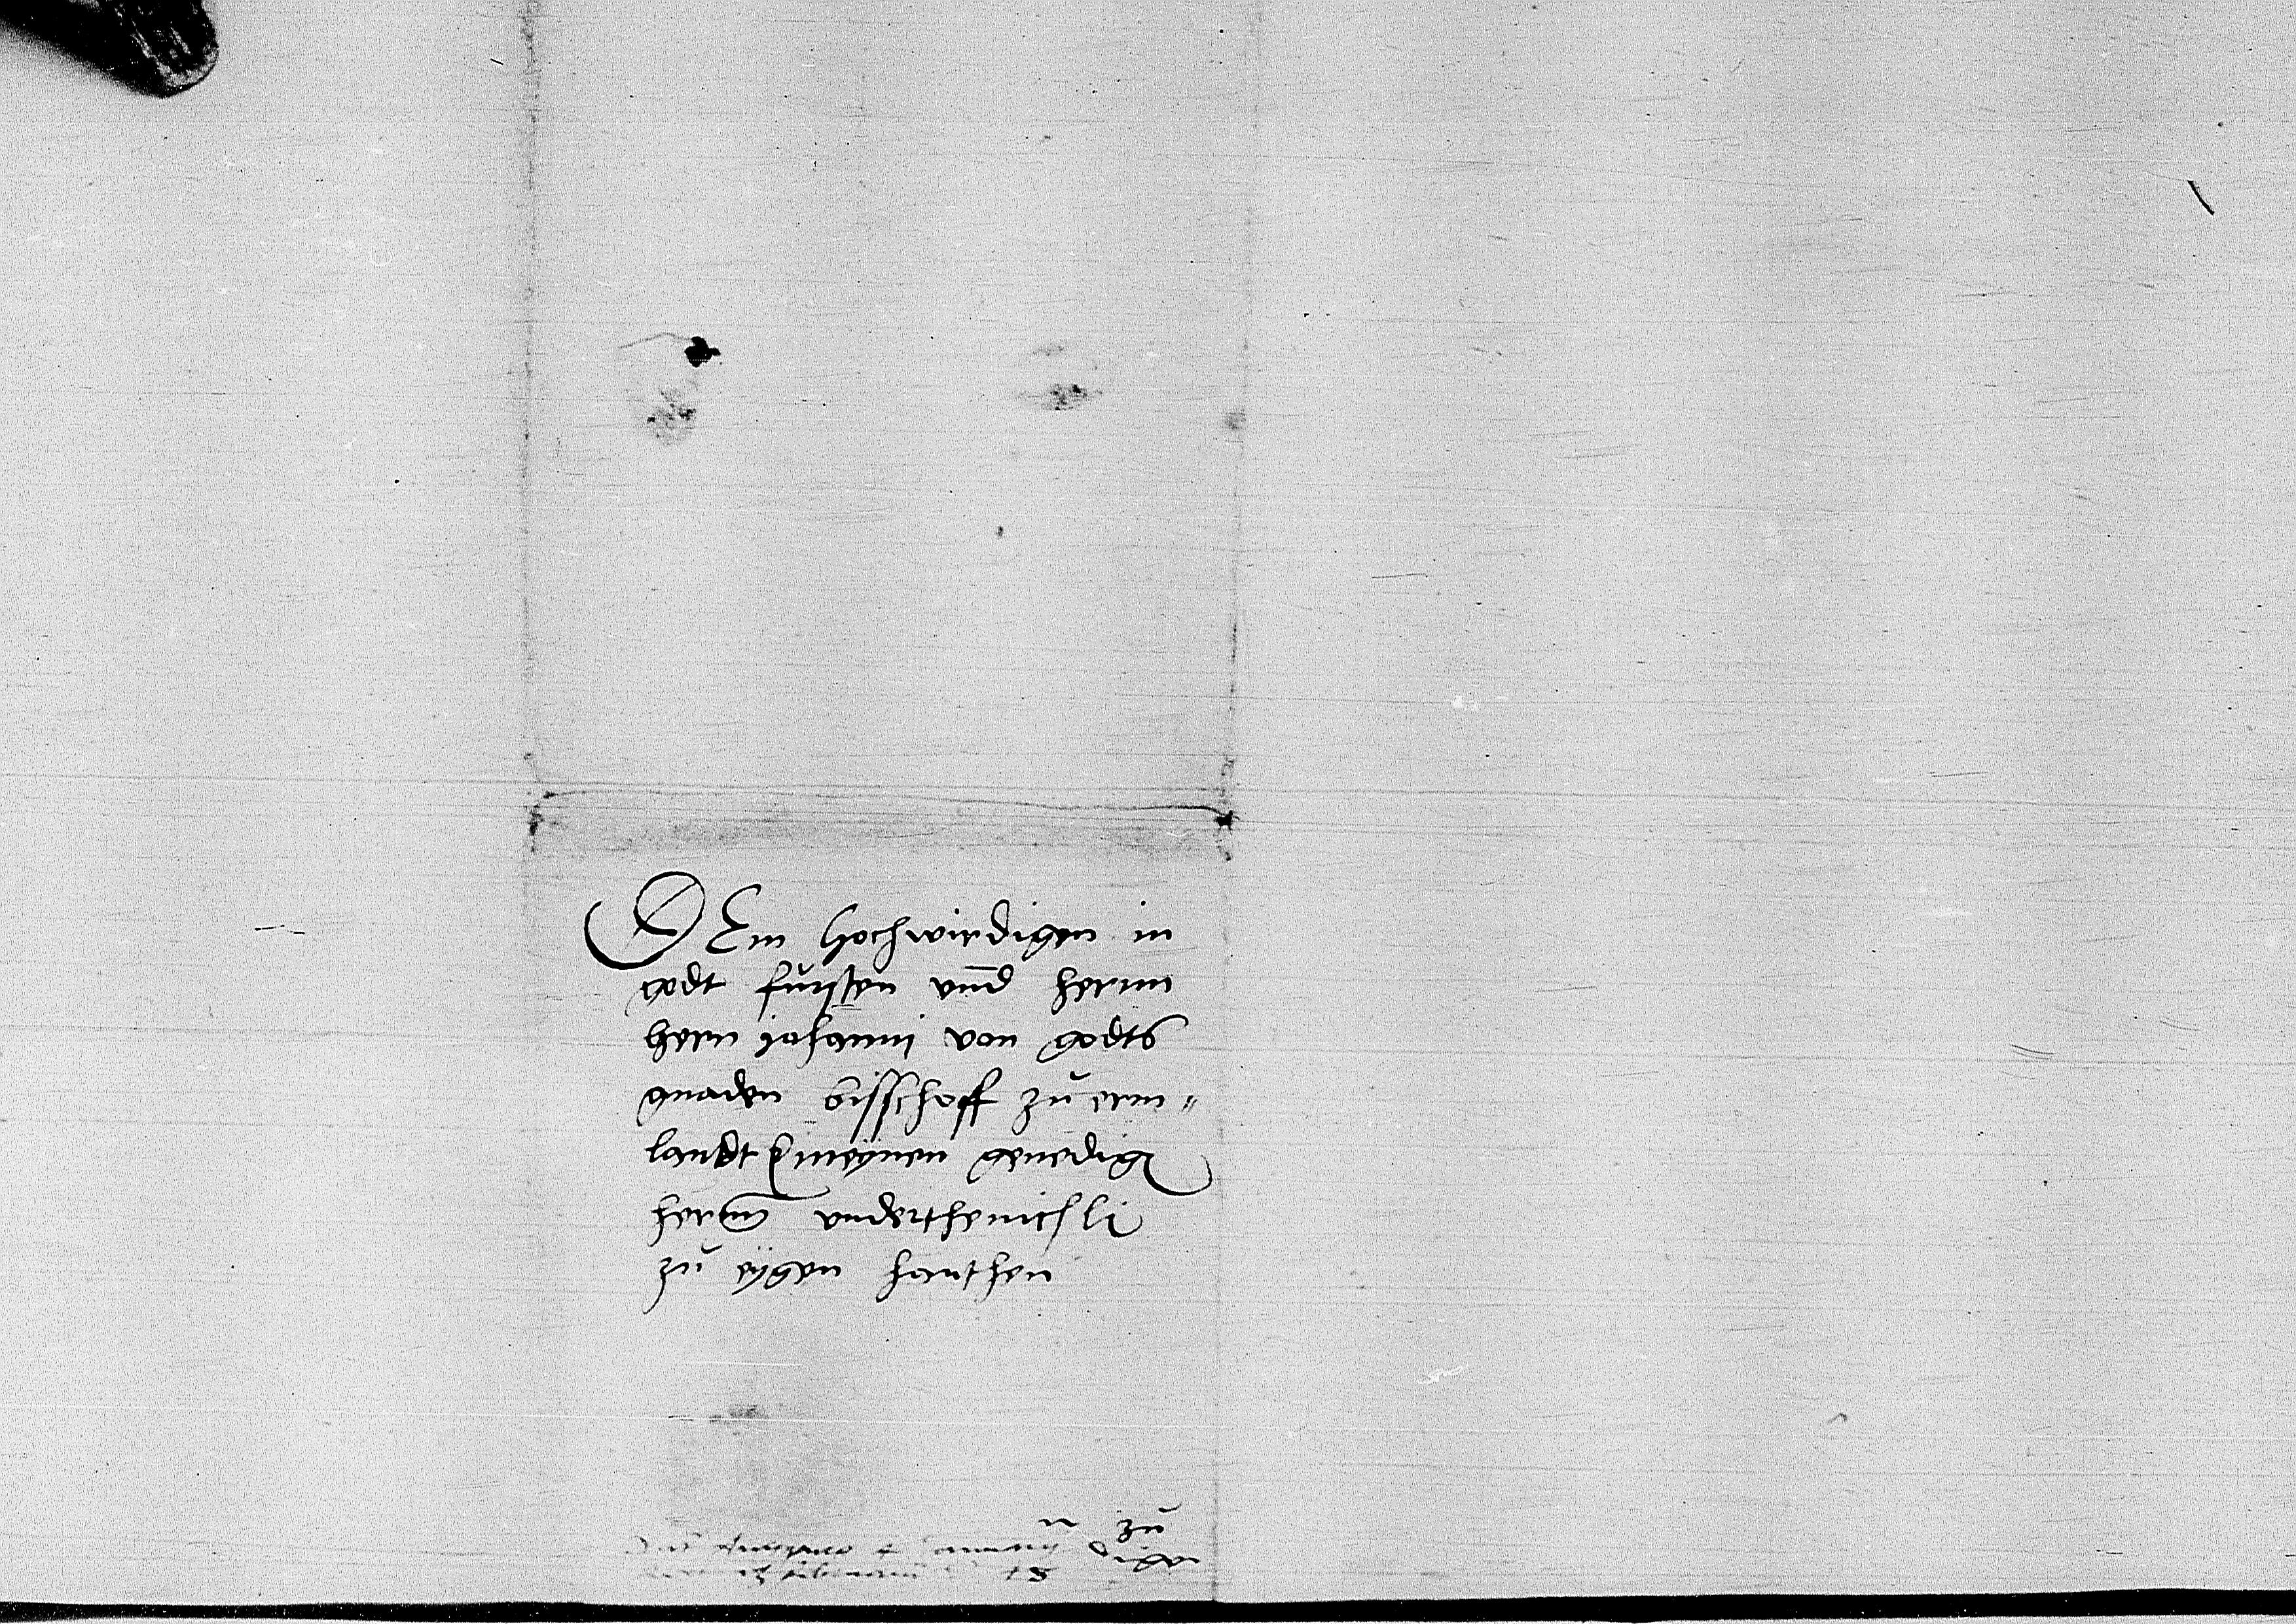 DEm hochwirdigen in
godt fursten vnd hernn
hern johanni von godts
gnaden bisschoff zu erm-
landt meynen genedig
hernn vnderthenichli
zu eygen hanthen
zu